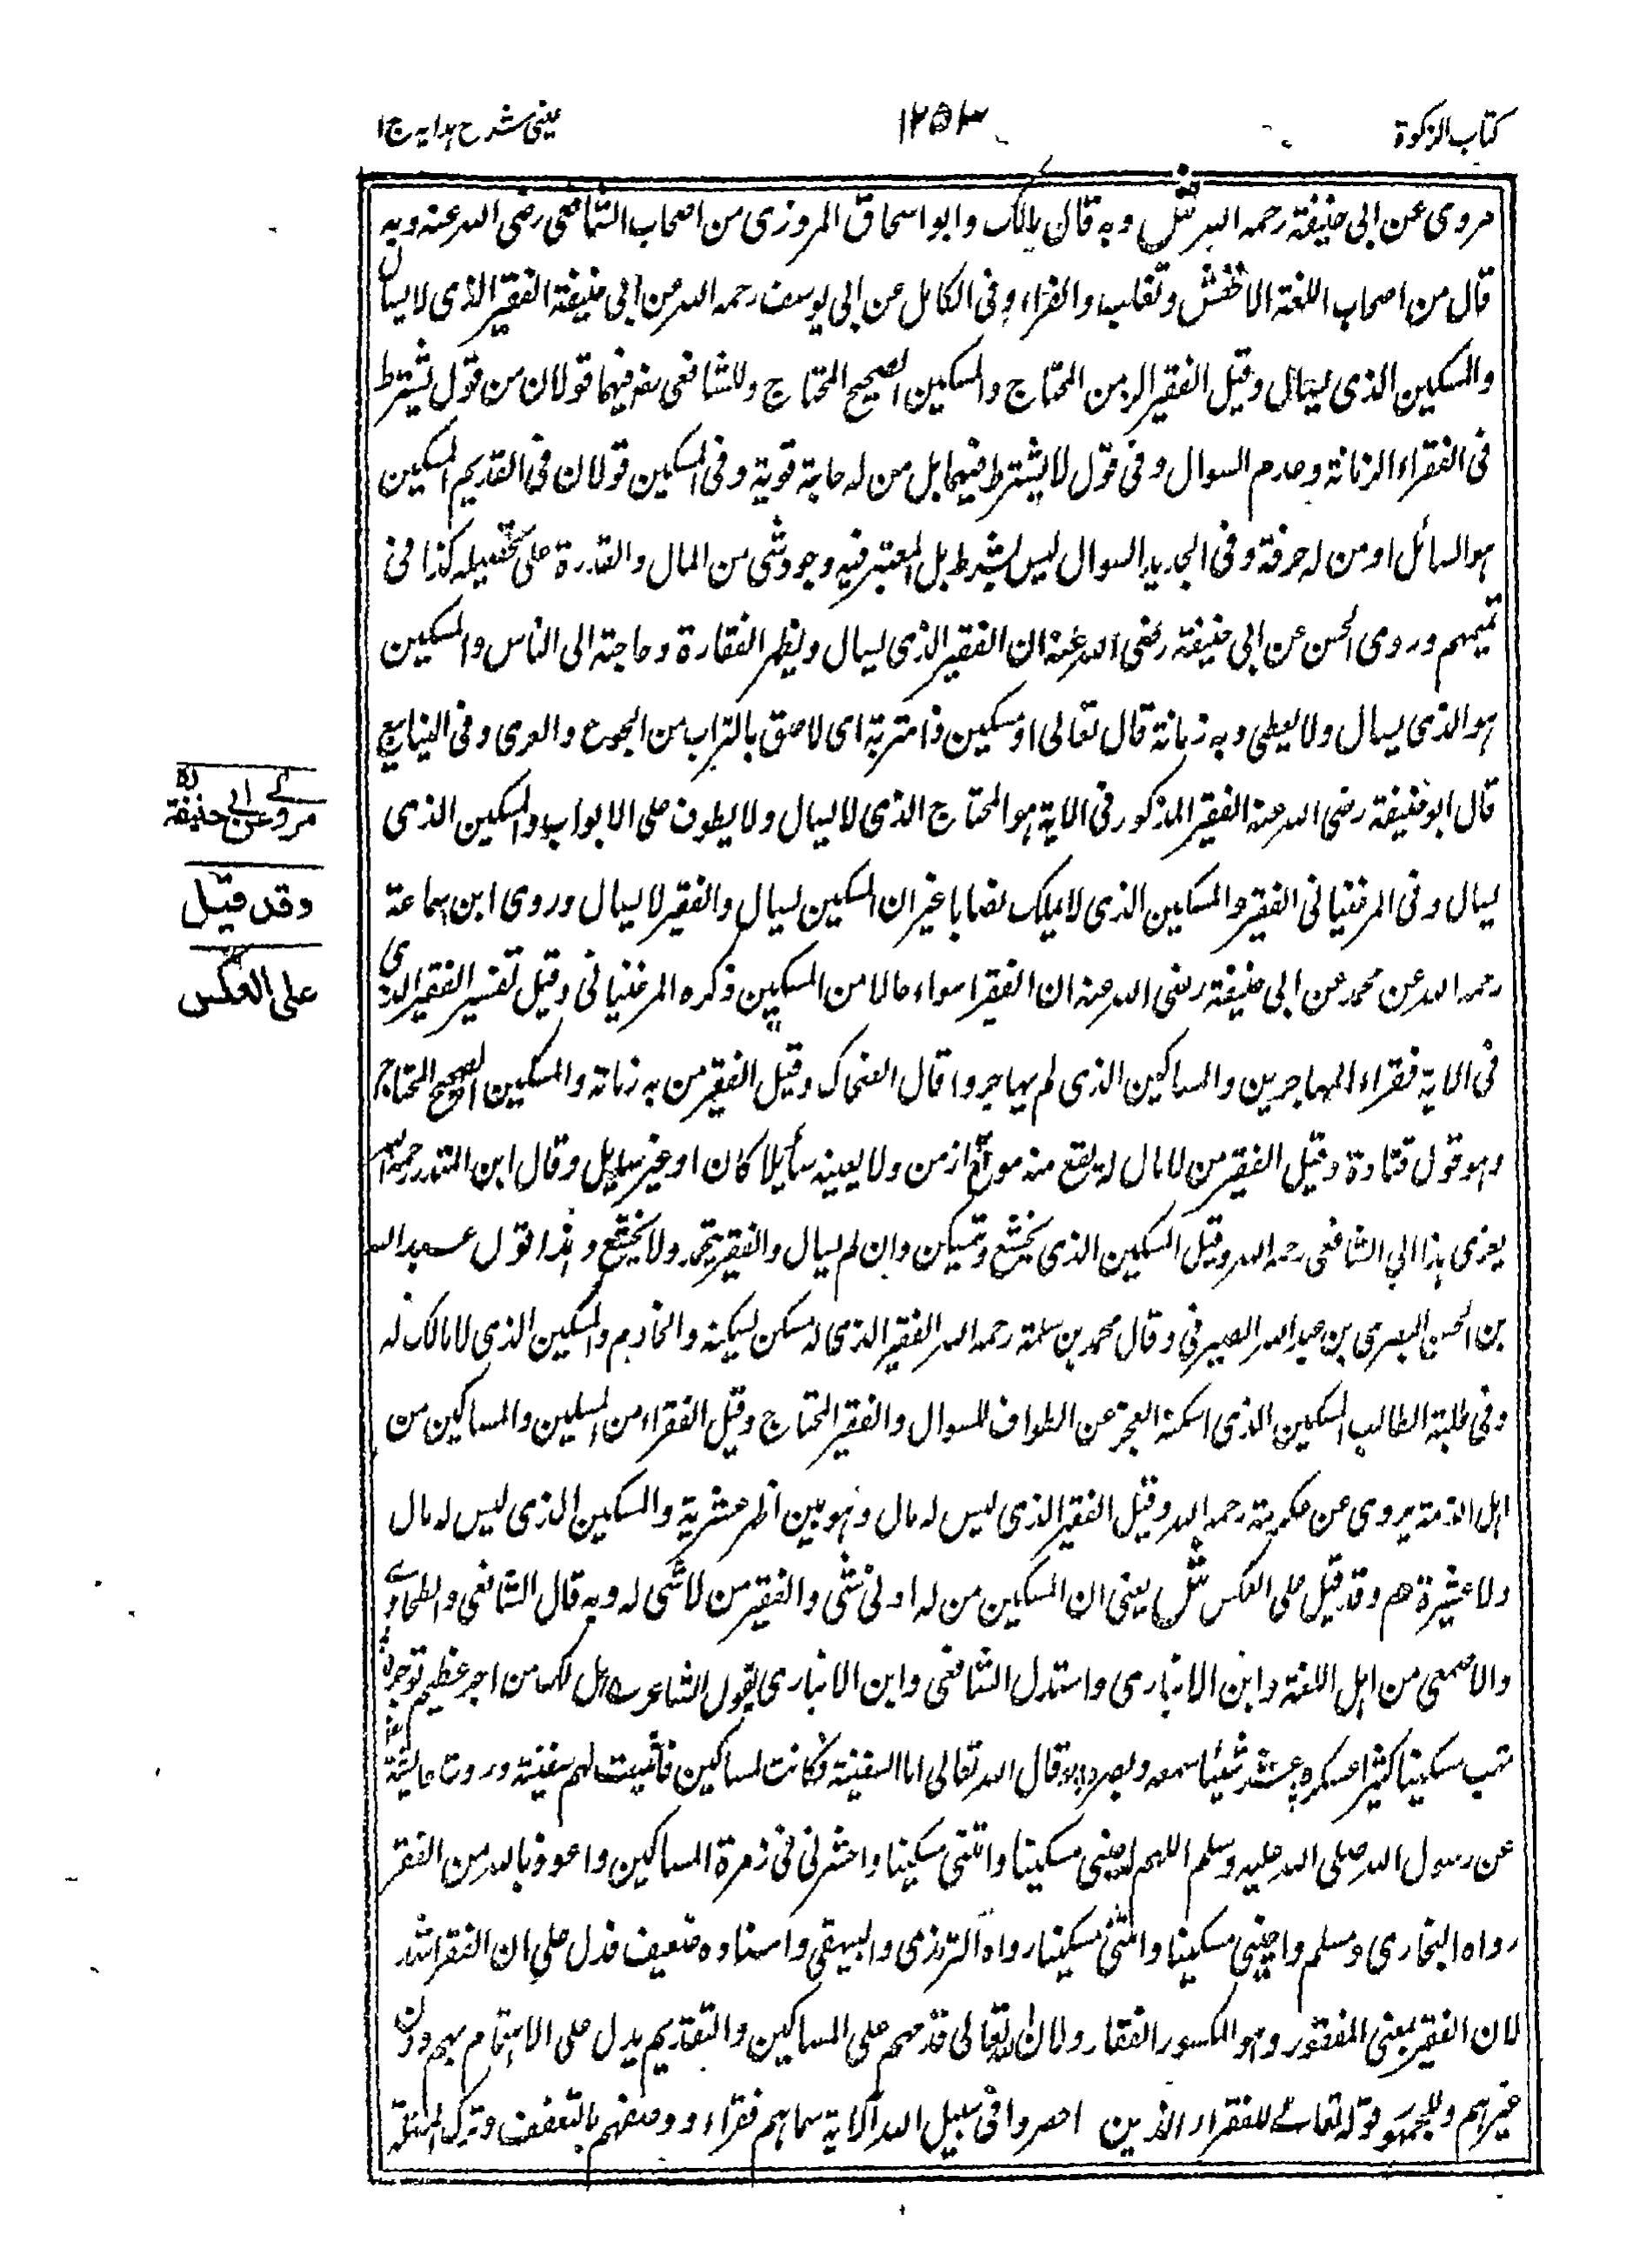 كتاب الزكوة
١٢٥٣
عينى شرح هدايه ج١
مروى عن ابى حنيفة رحمه الله ش وبه قال مالك وابو اسحاق المروزى من اصحاب الشافعى رضى الله عنه وبه
قال من اصحاب اللغة الاخفش وثعلب والفراء وفى الكامل عن ابى يوسف رحمه الله عن ابى حنيفة الفقير الذى لا يسأل
والمسكين الذى يسأل وقيل الفقير الزمن المحتاج والمسكين الصحيح المحتاج وللشافعى رض فيهما قولان من قول يشترط
فى الفقراء الزمانة وعدم السوال وفى قول لا يشترط فيهما بل من له حاجة قوية وفى المسكين قولان فى القديم المسكين
هو السائل او من له حرفة وفى الجديد السوال ليس بشرط بل المعتبر فيه وجود شى من المال والقدرة على تحصيله كذا فى
تتميمهم وروى الحسن عن ابى حنيفة رضى الله عنه ان الفقير الذى يسال ويظهر الفقارة وحاجته الى الناس والمسكين
هو الذى يسال ولا يعطى وبه زمانة قال تعالى او مسكين ذا متربة اى لاصق بالتراب من الجوع والعرى وفى الينابيع
قال ابو حنيفة رضى الله عنه الفقير المذكور فى الاية هو المحتاج الذى لا يسال ولا يطوف على الابواب والمسكين الذى
يسال وفى المرغينانى الفقير والمسكين الذى لا يملك نصابا غير ان المسكين يسال والفقير لا يسال وروى ابن سماعة
رحمه الله عن محمد عن ابى حنيفة رضى الله عنه ان الفقير اسواء حالا من المسكين ذكره المرغينانى وقيل تفسير الفقير الذى
فى الاية فقراء المهاجرين والمساكين الذى لم يهاجروا قال الضحاك وقيل الفقير من به زمانة والمسكين الصحيح المحتاج
وهو قول قتادة وقيل الفقير من لا مال له يقع منه موقعا زمن ولا يعينه سأيلا كان او غير سايل وقال ابن المنذر رحمه الله
يعزى هذا الى الشافعى رحمه الله وقيل المسكين الذى يخشع وتمسكن وان لم يسال والفقير يتحمد ولا يخشع وهذا قول عبيد الله
بن الحسن البصرى بن عبد الله الصيرفى وقال محمد بن سلمة رحمه الله الفقير الذى له مسكن يسكنه والخادم والمسكين الذى لا مالك له
وفى طلبة الطالب المسكين الذى اسكنه العجز عن الطواف للسوال والفقير المحتاج وقيل الفقراء من المسلمين والمساكين من
اهل الذمة يروى عن عكرمة رحمه الله وقيل الفقير الذى ليس له مال وهو بين اظهر عشيرته والمسكين الذى ليس له مال
ولا عشيرة هم وقد قيل على العكس ش يعنى ان المسكين من له ادنى شى والفقير من لا شى له وبه قال الشافعى والطحاوى
والاصمعى من اهل اللغة وابن الانبارى واستدل الشافعى وابن الانبارى بقول الشاعر هل لك من اجر عظيم توجره
مسكينا كثيرا عسكره عشر شيئا سمعه وبصره وقال الله تعالى اما السفينة فكانت لمساكين فاثبت لهم سفينة وروت عائشة
عن رسول الله صلى الله عليه وسلم اللهم احينى مسكينا وامتنى مسكينا واحشرنى فى زمرة المساكين واعوذ بالله من الفقر
رواه البخارى ومسلم واحينى مسكينا وامتنى مسكينا رواه الترمذى والبيهقى واسناده ضعيف فدل على ان الفقر اشد
لان الفقير بمعنى المفقور وهو المكسور الفقار ولان الله تعالى قدمهم على المساكين والتقديم يدل على الاهتمام بهم دون
غيرهم وللجمهور قوله تعالى للفقراء الذين احصروا فى سبيل الله الآية سماهم فقراء ووصفهم بالتعفف وترك المسئلة
مروى عن ابى حنيفة ره
وقد قيل
على العكس